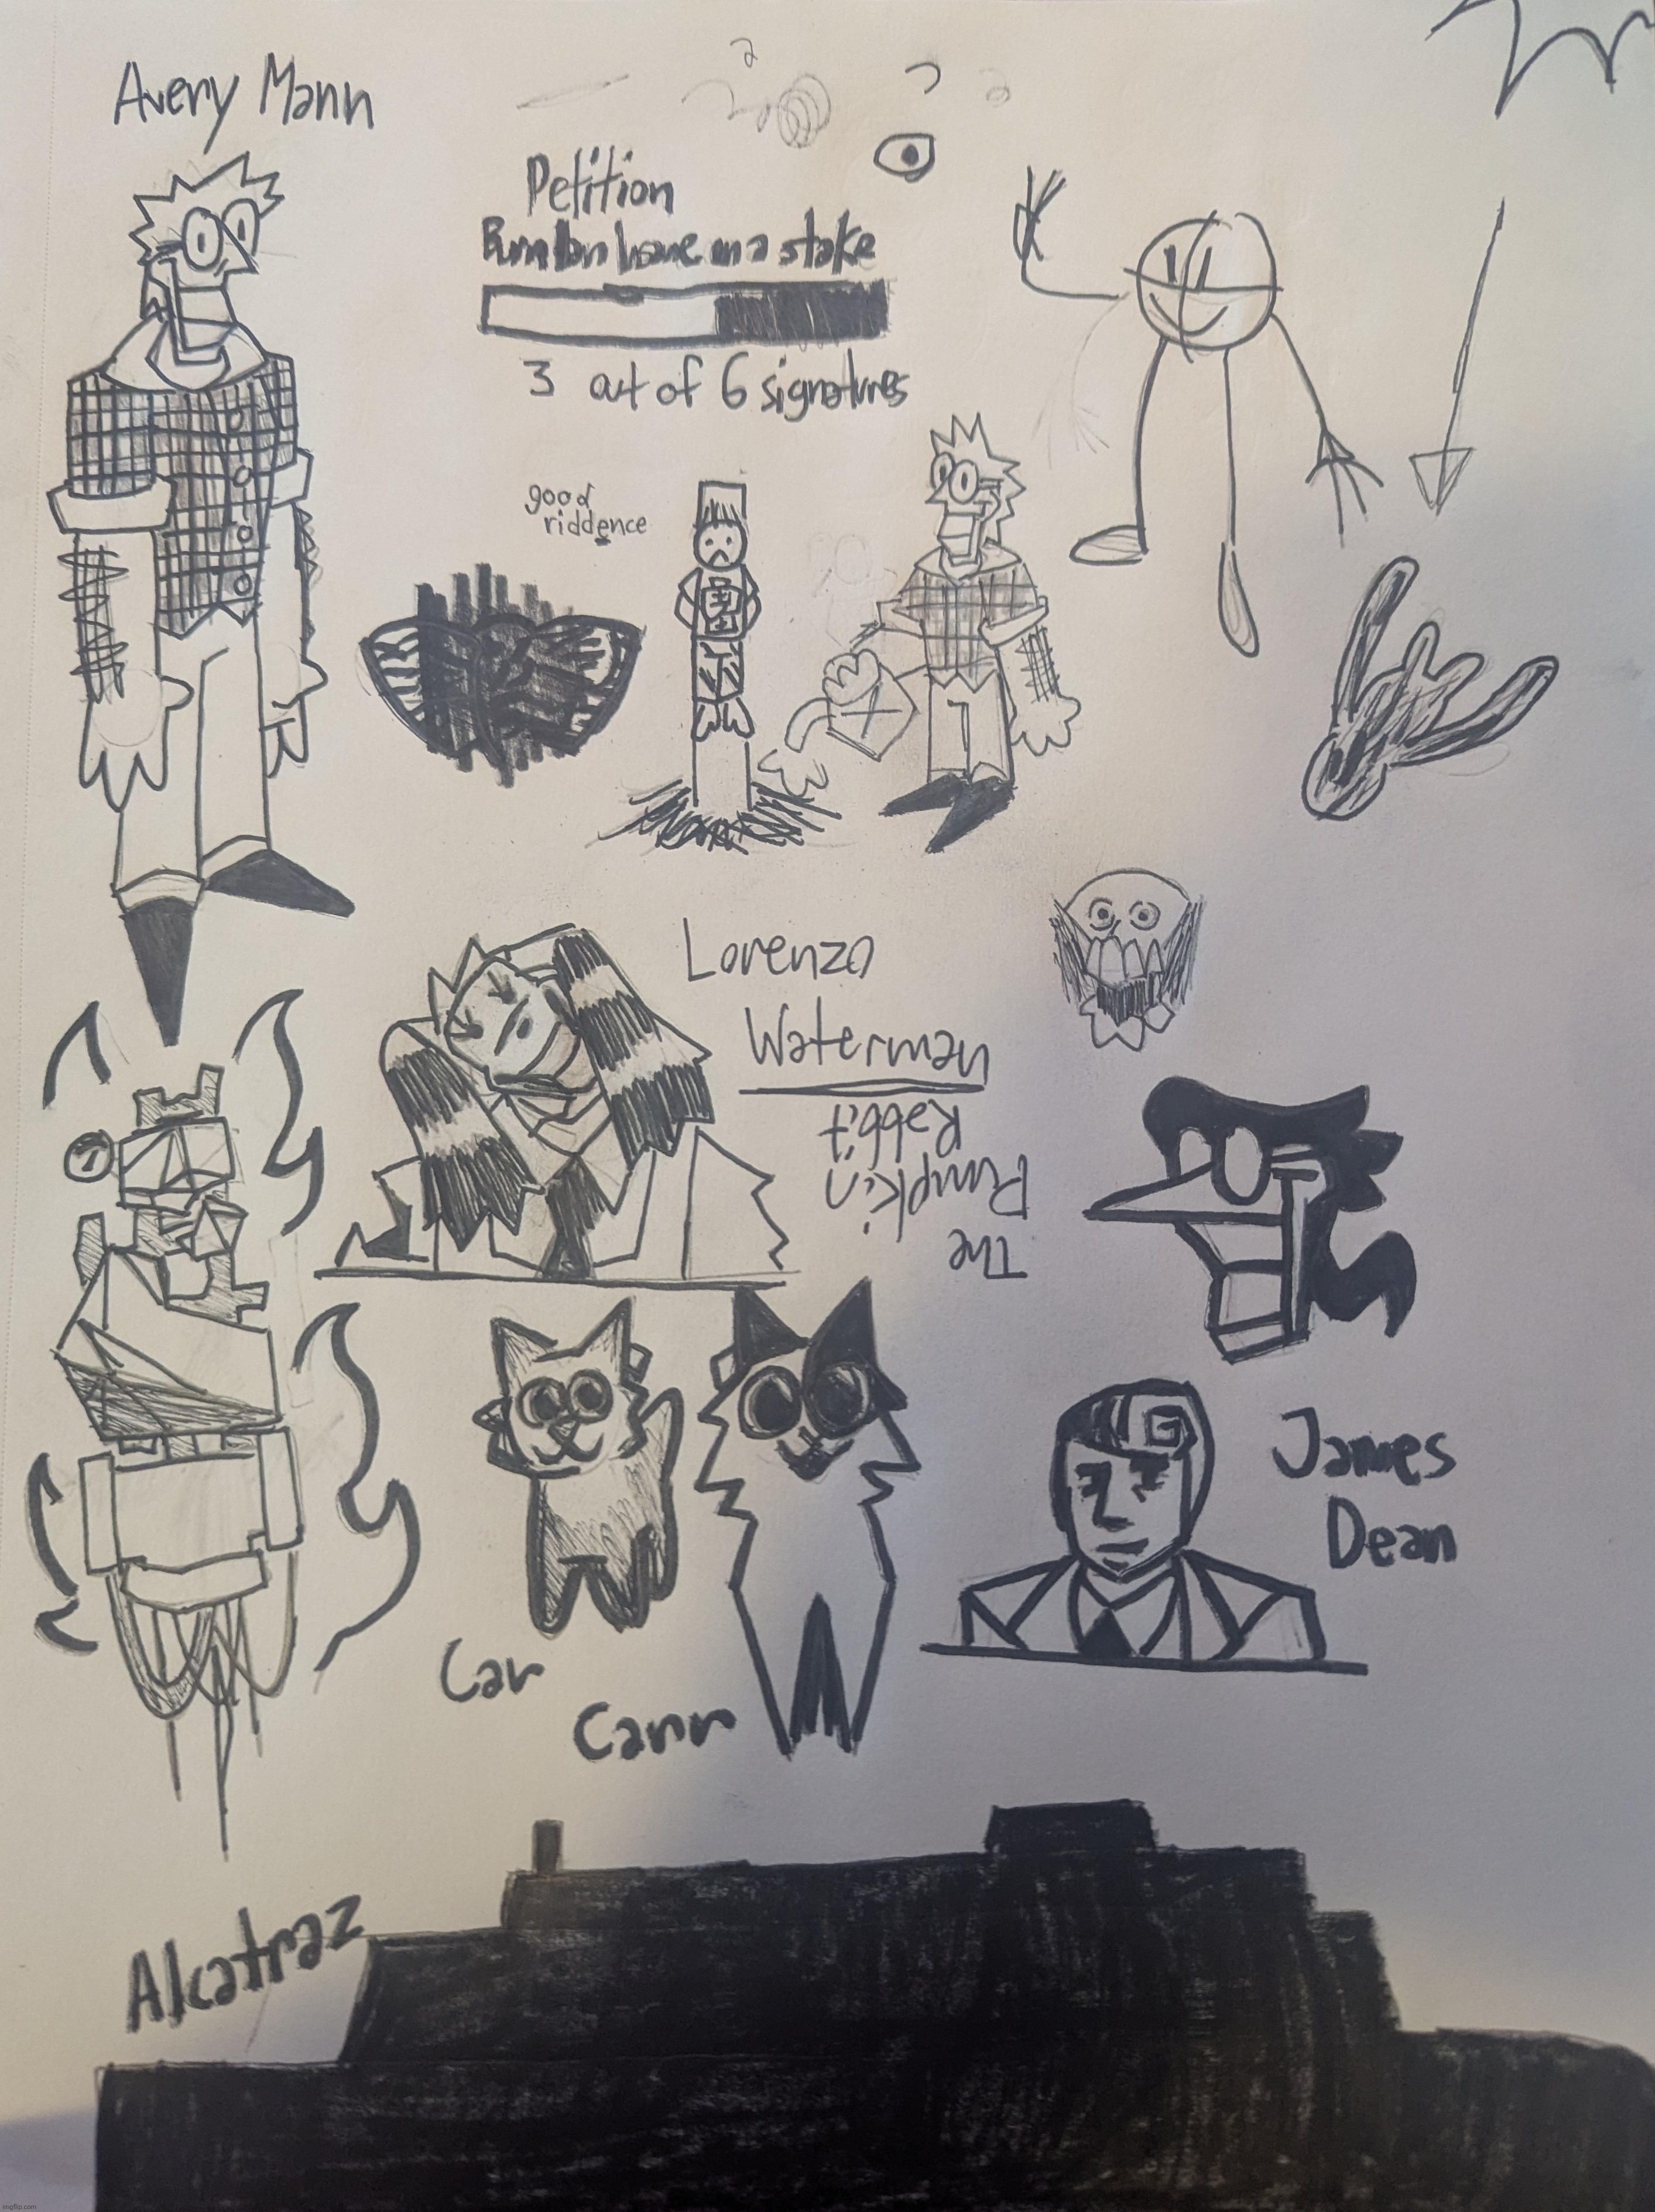 Avery Mann
Petition
on a stake
3 out of 6 signatures
good
riddence
Lorenzo
Waterman
The
Pumpkin
Rabbit
James
Dean
Car
Cann
Alcatraz
imgflip.com